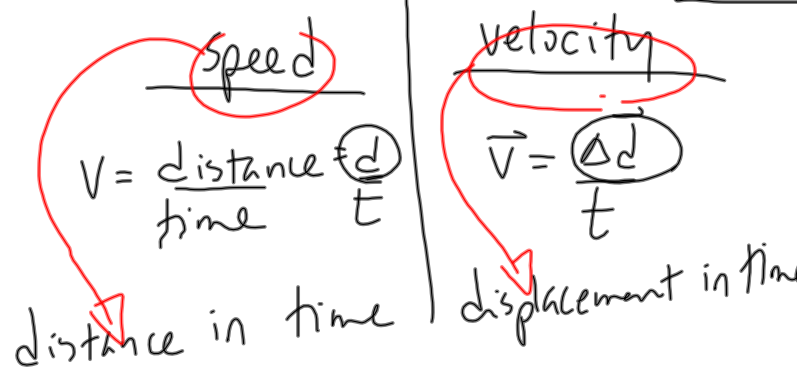 speed
V = distance/time = d/t
distance in time
velocity
v⃗ = Δd⃗/t
displacement in tim